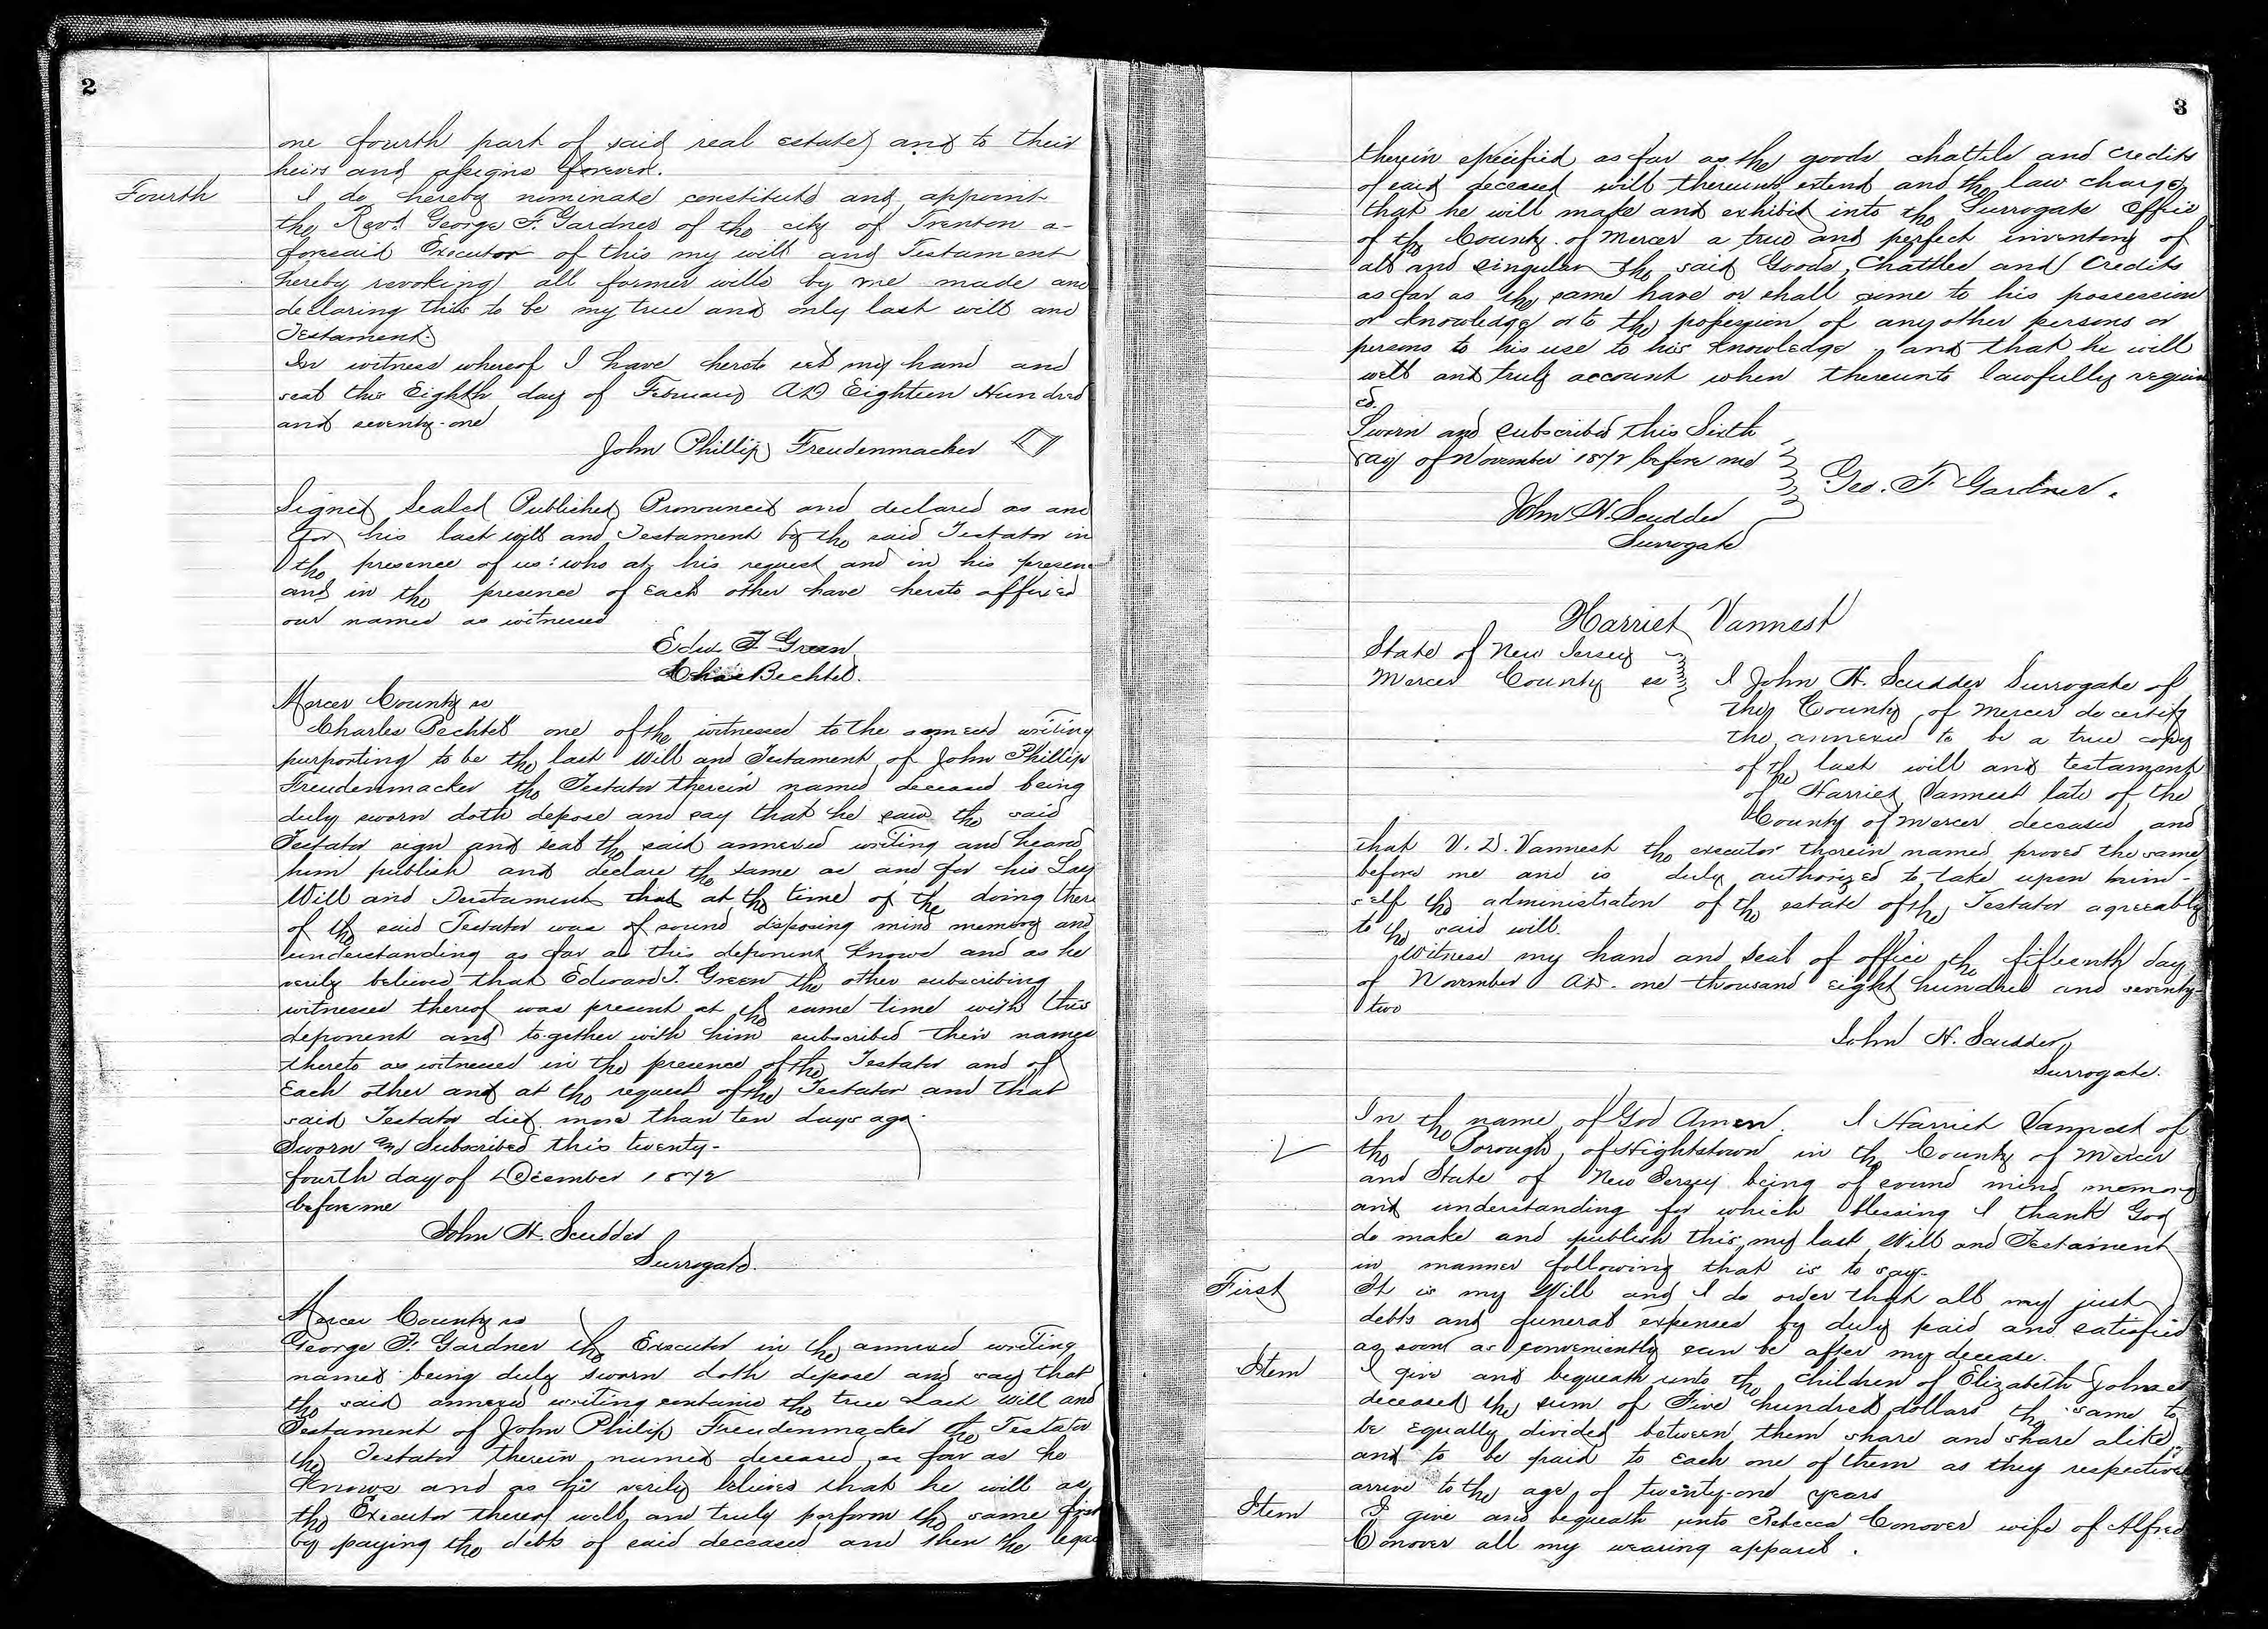 2
one fourth part of said real estate and to their
heirs and assigns forever.
Fourth I do hereby nominate constitute and appoint
the Revd. George F. Gardner of the city of Trenton a-
foresaid Executor of this my will and Testament
hereby revoking all former wills by me made and
declaring this to be my true and only last will and
Testament.
In witness whereof I have hereto set my hand and
seal this Eighth day of February AD Eighteen Hundred
and seventy-one
John Phillip Freudenmacker
Signed Sealed Published Pronounced and declared as and
for his last will and Testament by the said Testator in
the presence of us: who at his request and in his presen
and in the presence of each other have hereto affixed
our names as witnesses
Edw. T. Green
Chas Bechtel.
Mercer County ss
Charles Bechtel one of the witnesses to the annexed writing
purporting to be the last Will and Testament of John Phillip
Freudenmacker the Testator therein named deceased being
duly sworn doth depose and say that he saw the said
Testator sign and seal the said annexed writing and heard
him publish and declare the same as and for his Las
Will and Testament that at the time of the doing there
of the said Testator was of sound disposing mind memory and
understanding as far as this deponent knows and as he
verily believes that Edward T. Green the other subscribing
witnesses thereof was present at the same time with this
deponent and together with him subscribed their names
thereto as witnesses in the presence of the Testator and of
Each other and at the request of the Testator and that
said Testator died more than ten days ago.
Sworn and Subscribed this twenty-
fourth day of December 1872
before me
John H. Scudder
Surrogate.
Mercer County ss
George F. Gardner the Executor in the annexed writing
named being duly sworn doth depose and say that
the said annexed writing contains the true Last Will and
Testament of John Philip Freudenmacker the Testator
the Testator therein named deceased as far as he
knows and as he verily believes that he will as
the Executor thereof well and truly perform the same first
by paying the debts of said deceased and then the legac
3
therein specified as far as the goods chattels and credits
of said deceased will thereunto extend and the law charge
that he will make and exhibit into the Surrogate Office
of the County of Mercer a true and perfect inventory of
all and singular the said Goods, Chattles and Credits
as far as the same have or shall come to his possession
or knowledge or to the possession of any other persons or
persons to his use to his knowledge, and that he will
well and truly account when thereunto lawfully requir
ed.
Sworn and subscribed this Sixth
day of November 1872 before me
Geo. F. Gardner.
John H. Scudder
Surrogate
Harriet Vannest
State of New Jersey
Mercer County ss I John H. Scudder Surrogate of
the County of Mercer do certify
the annexed to be a true copy
of the last will and testament
of Harriet Vannest late of the
County of Mercer deceased and
that V. D. Vannest the executor therein named proved the same
before me and is duly authorized to take upon him-
self the administraton of the estate of the Testator agreeably
to the said will.
Witness my hand and seal of office the fifteenth day
of November AD. one thousand eight hundred and seventy-
two
John H. Scudder,
Surrogate.
In the name of God Amen. I Harriet Vannest of
the Borough of Hightstown in the County of Mercer
and State of New Jersey being of sound mind memory
and understanding for which blessing I thank God
do make and publish this my last Will and Testament
in manner following that is to say.
First It is my Will and I do order that all my just
debts and funeral expenses by duly paid and satisfied
as soon as conveniently can be after my decease.
Item I give and bequeath unto the children of Elizabeth Johnes
deceased the sum of Five hundred dollars the same to
be equally divided between them share and share alike,
and to be paid to each one of them as they respective
arrive to the age of twenty-one years
Item I give and bequeath unto Rebecca Conover wife of Alfred
Conover all my wearing apparel.